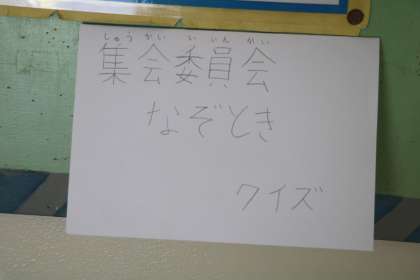 しゅう かい い いん かい
集会委員会
なぞとき
クイズ